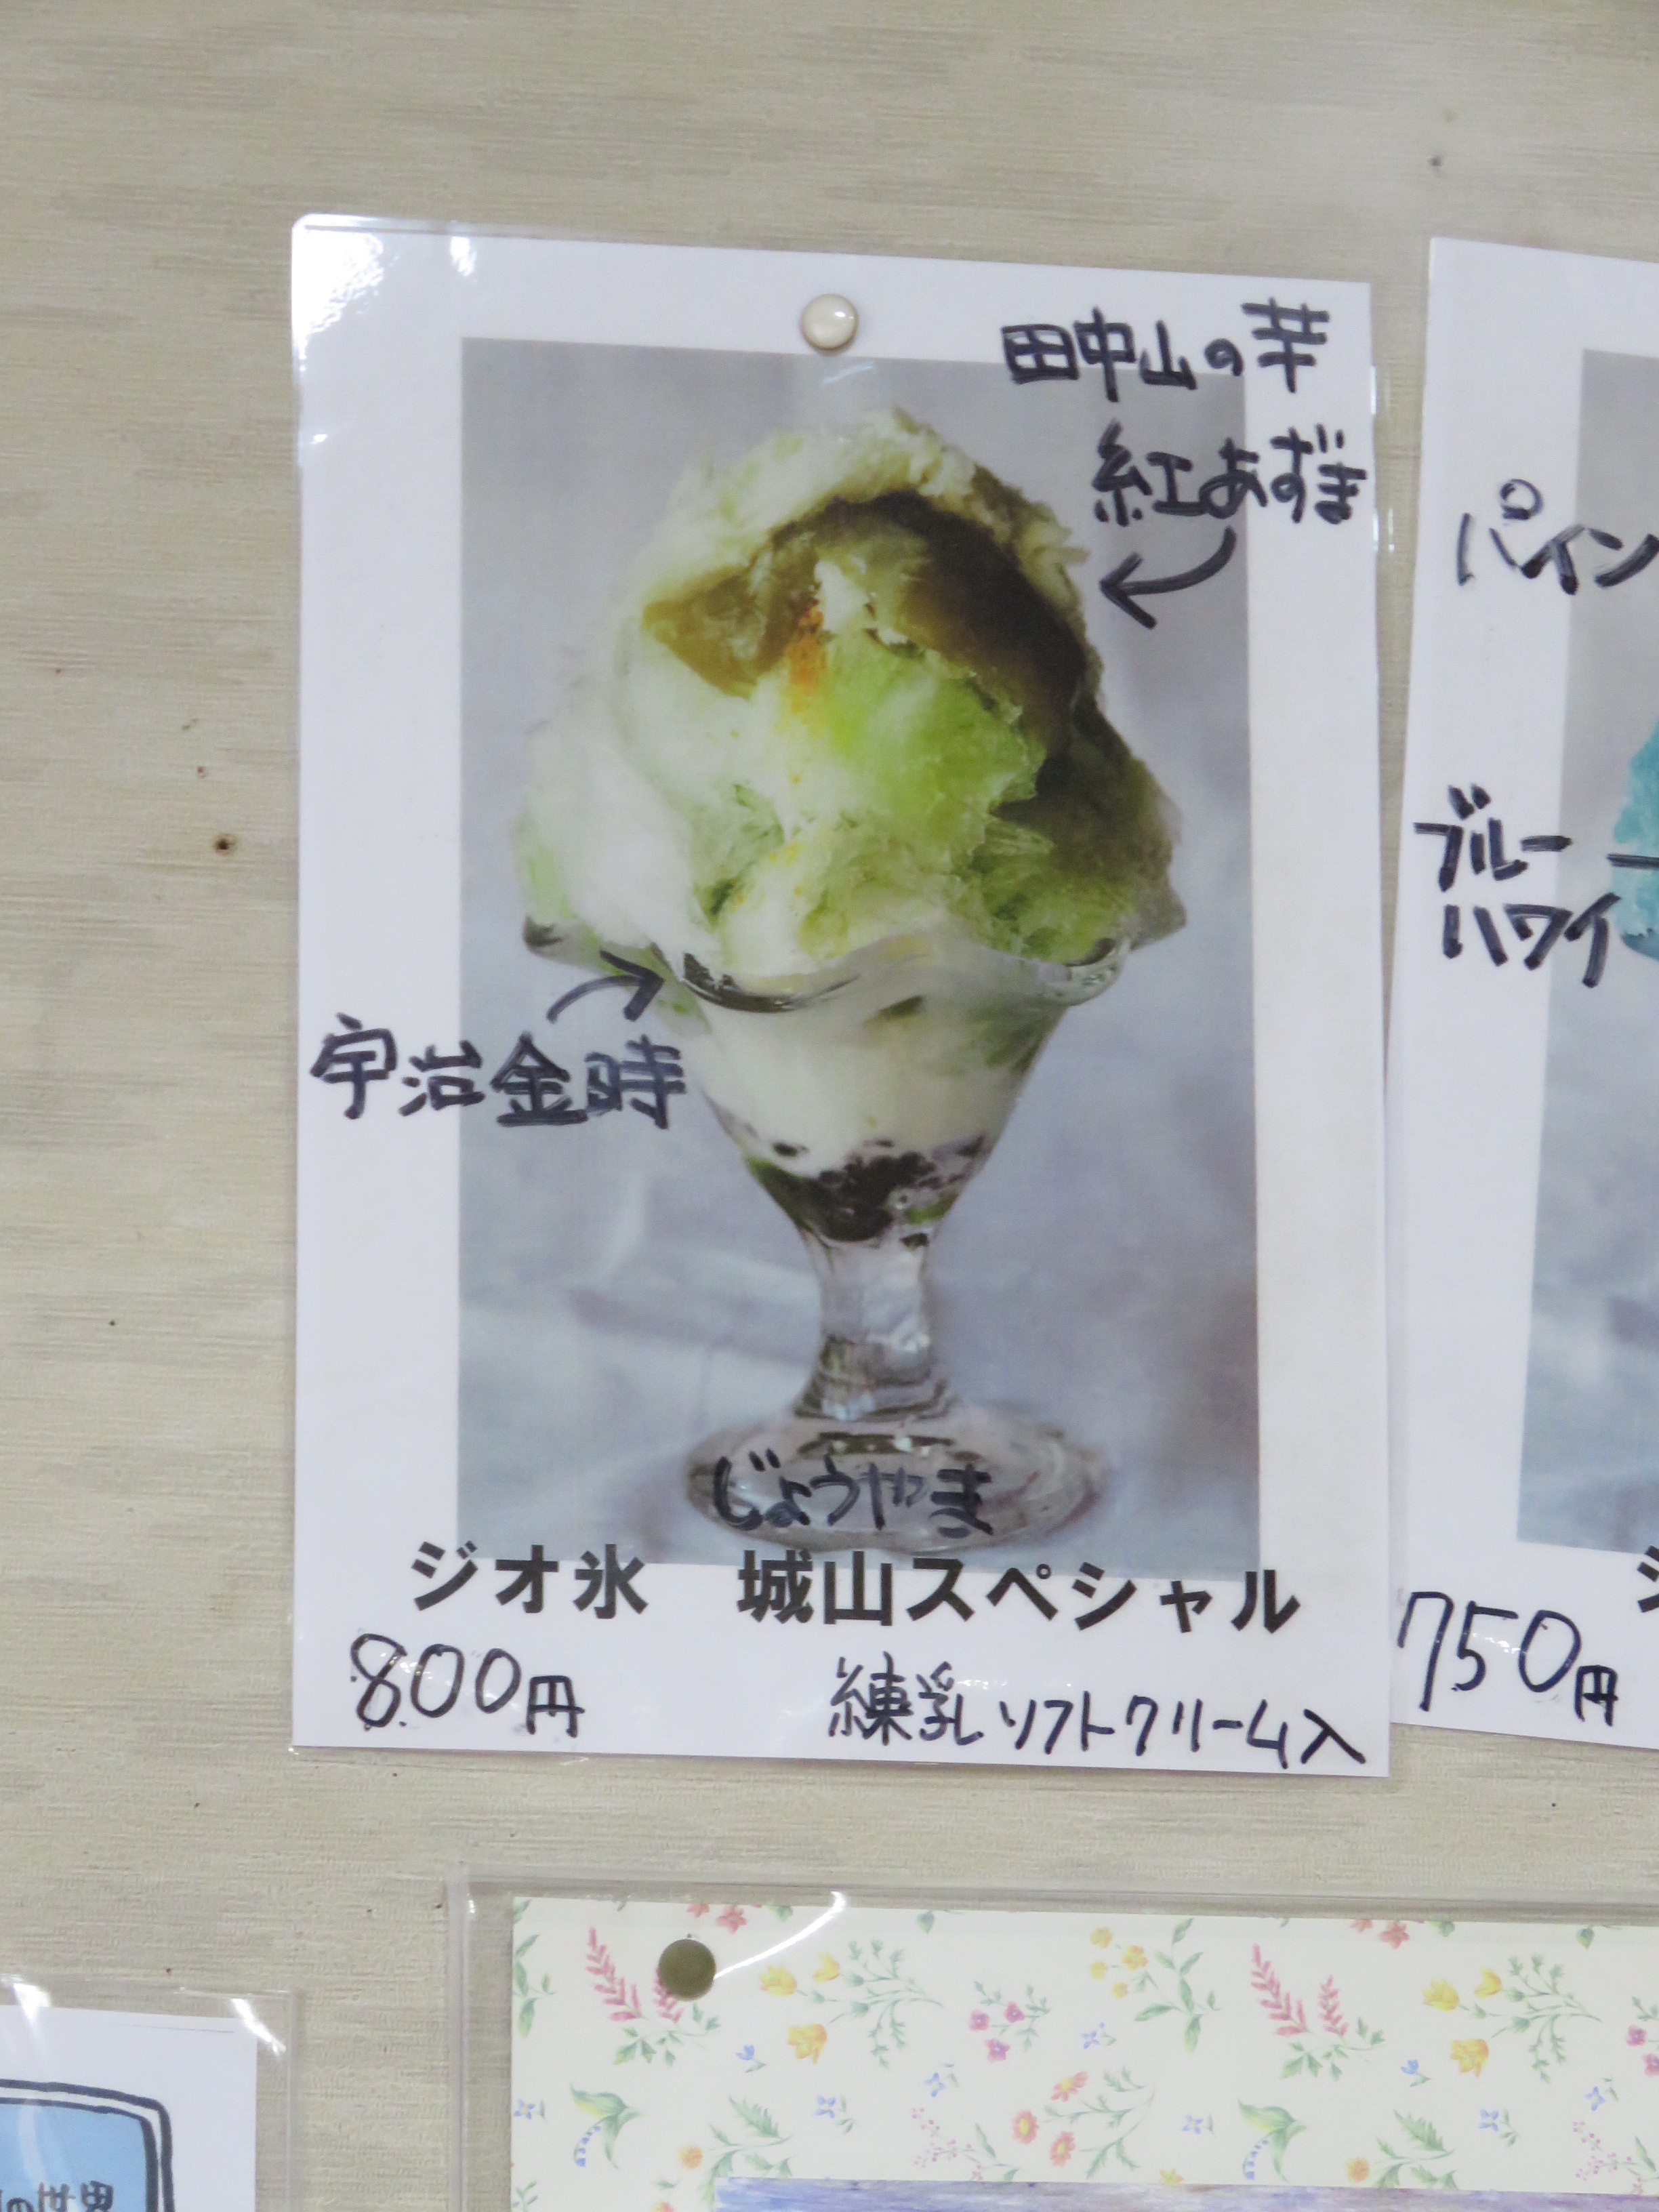 田中山の芋
紅あずま
宇治金時
じょうやま
ジオ氷 城山スペシャル
800円
練乳ソフトクリーム入
パイン
ブルー
ハワイ
ジ
750円
の世界